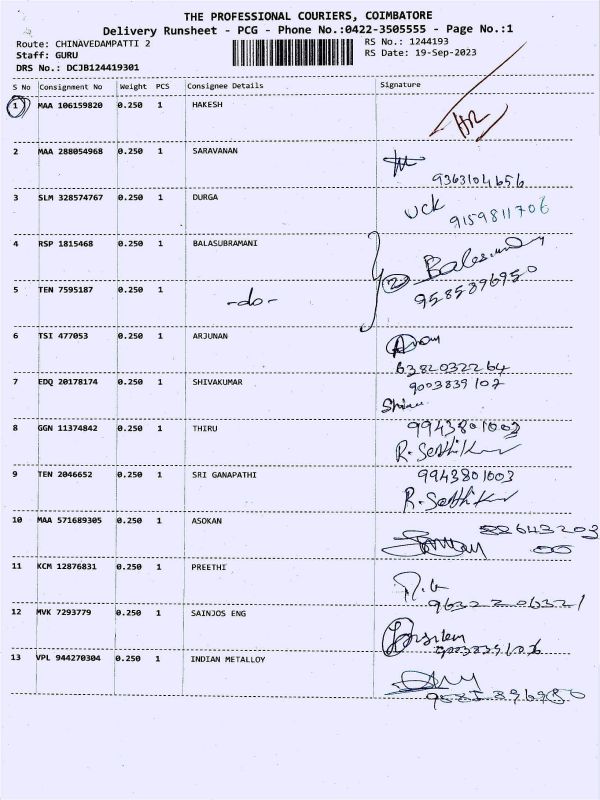 THE PROFESSIONAL COURIERS, COIMBATORE
Delivery Runsheet - PCG - Phone No.:0422-3505555 - Page No.:1
Route: CHINAVEDAMPATTI 2 RS No.: 1244193
Staff: GURU RS Date: 19-Sep-2023
DRS No.: DCJB124419301
S No Consignment No Weight PCS Consignee Details Signature
1 MAA 106159820 0.250 1 HAKESH
2 MAA 288054968 0.250 1 SARAVANAN
9363104656
3 SLM 328574767 0.250 1 DURGA
9159811706
4 RSP 1815468 0.250 1 BALASUBRAMANI
2
5 TEN 7595187 0.250 1 -do- 9585896950
6 TSI 477053 0.250 1 ARJUNAN
6382032264
7 EDQ 20178174 0.250 1 SHIVAKUMAR 9003839107
8 GGN 11374842 0.250 1 THIRU 9943801003
R. Sathik
9 TEN 2046652 0.250 1 SRI GANAPATHI 9943801003
R. Sathik
10 MAA 571689305 0.250 1 ASOKAN
11 KCM 12876831 0.250 1 PREETHI
9632206321
12 MVK 7293779 0.250 1 SAINJOS ENG
13 VPL 944270304 0.250 1 INDIAN METALLOY